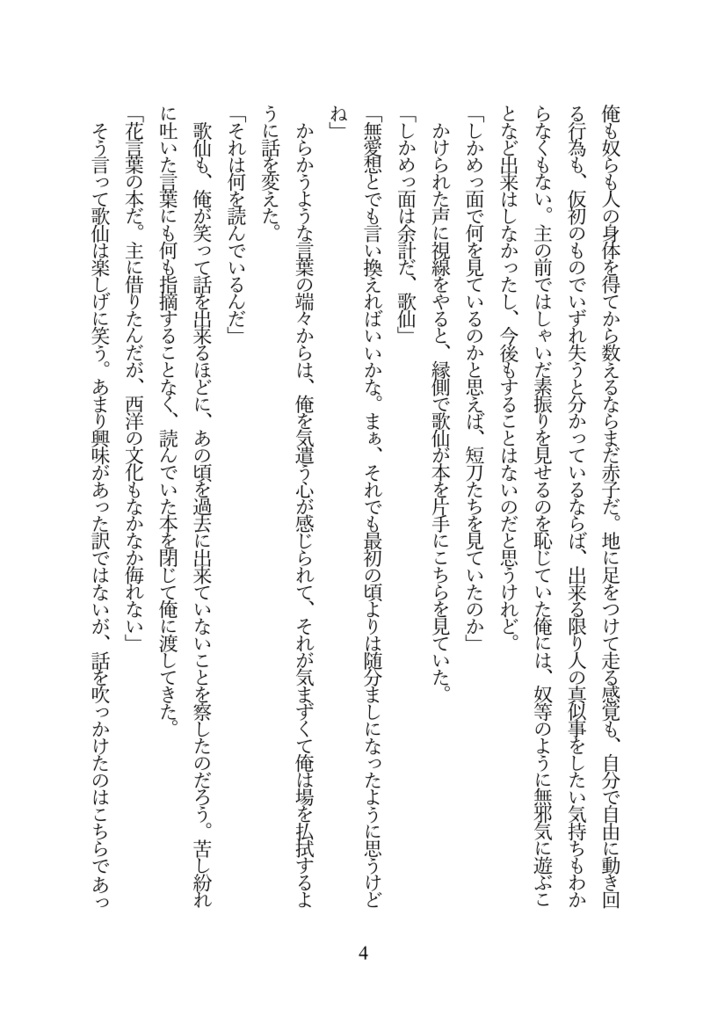 俺も奴らも人の身体を得てから数えるならまだ赤子だ。地に足をつけて走る感覚も、自分で自由に動き回
る行為も、仮初のものでいずれ失うと分かっているならば、出来る限り人の真似事をしたい気持ちもわか
らなくもない。主の前ではしゃいだ素振りを見せるのを恥じていた俺には、奴等のように無邪気に遊ぶこ
となど出来はしなかったし、今後もすることはないのだと思うけれど。
「しかめっ面で何を見ているのかと思えば、短刀たちを見ていたのか」
かけられた声に視線をやると、縁側で歌仙が本を片手にこちらを見ていた。
「しかめっ面は余計だ、歌仙」
「無愛想とでも言い換えればいいかな。まぁ、それでも最初の頃よりは随分ましになったように思うけど
ね」
からかうような言葉の端々からは、俺を気遣う心が感じられて、それが気まずくて俺は場を払拭するよ
うに話を変えた。
「それは何を読んでいるんだ」
歌仙も、俺が笑って話を出来るほどに、あの頃を過去に出来ていないことを察したのだろう。苦し紛れ
に吐いた言葉にも何も指摘することなく、読んでいた本を閉じて俺に渡してきた。
「花言葉の本だ。主に借りたんだが、西洋の文化もなかなか侮れない」
そう言って歌仙は楽しげに笑う。あまり興味があった訳ではないが、話を吹っかけたのはこちらであっ
4